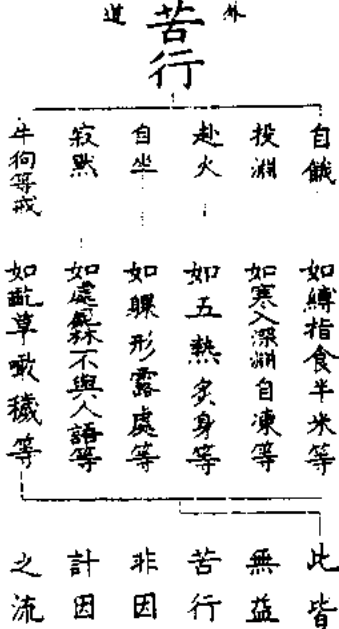 外道
苦行
自餓
投淵
赴火
自坐
寂默
牛狗等戒
如縛指食半米等
如寒入深淵自凍等
如五熱炙身等
如躶形露處等
如處屍林不與人語等
如齕草噉穢等
此皆
無益
苦行
非因
計因
之流